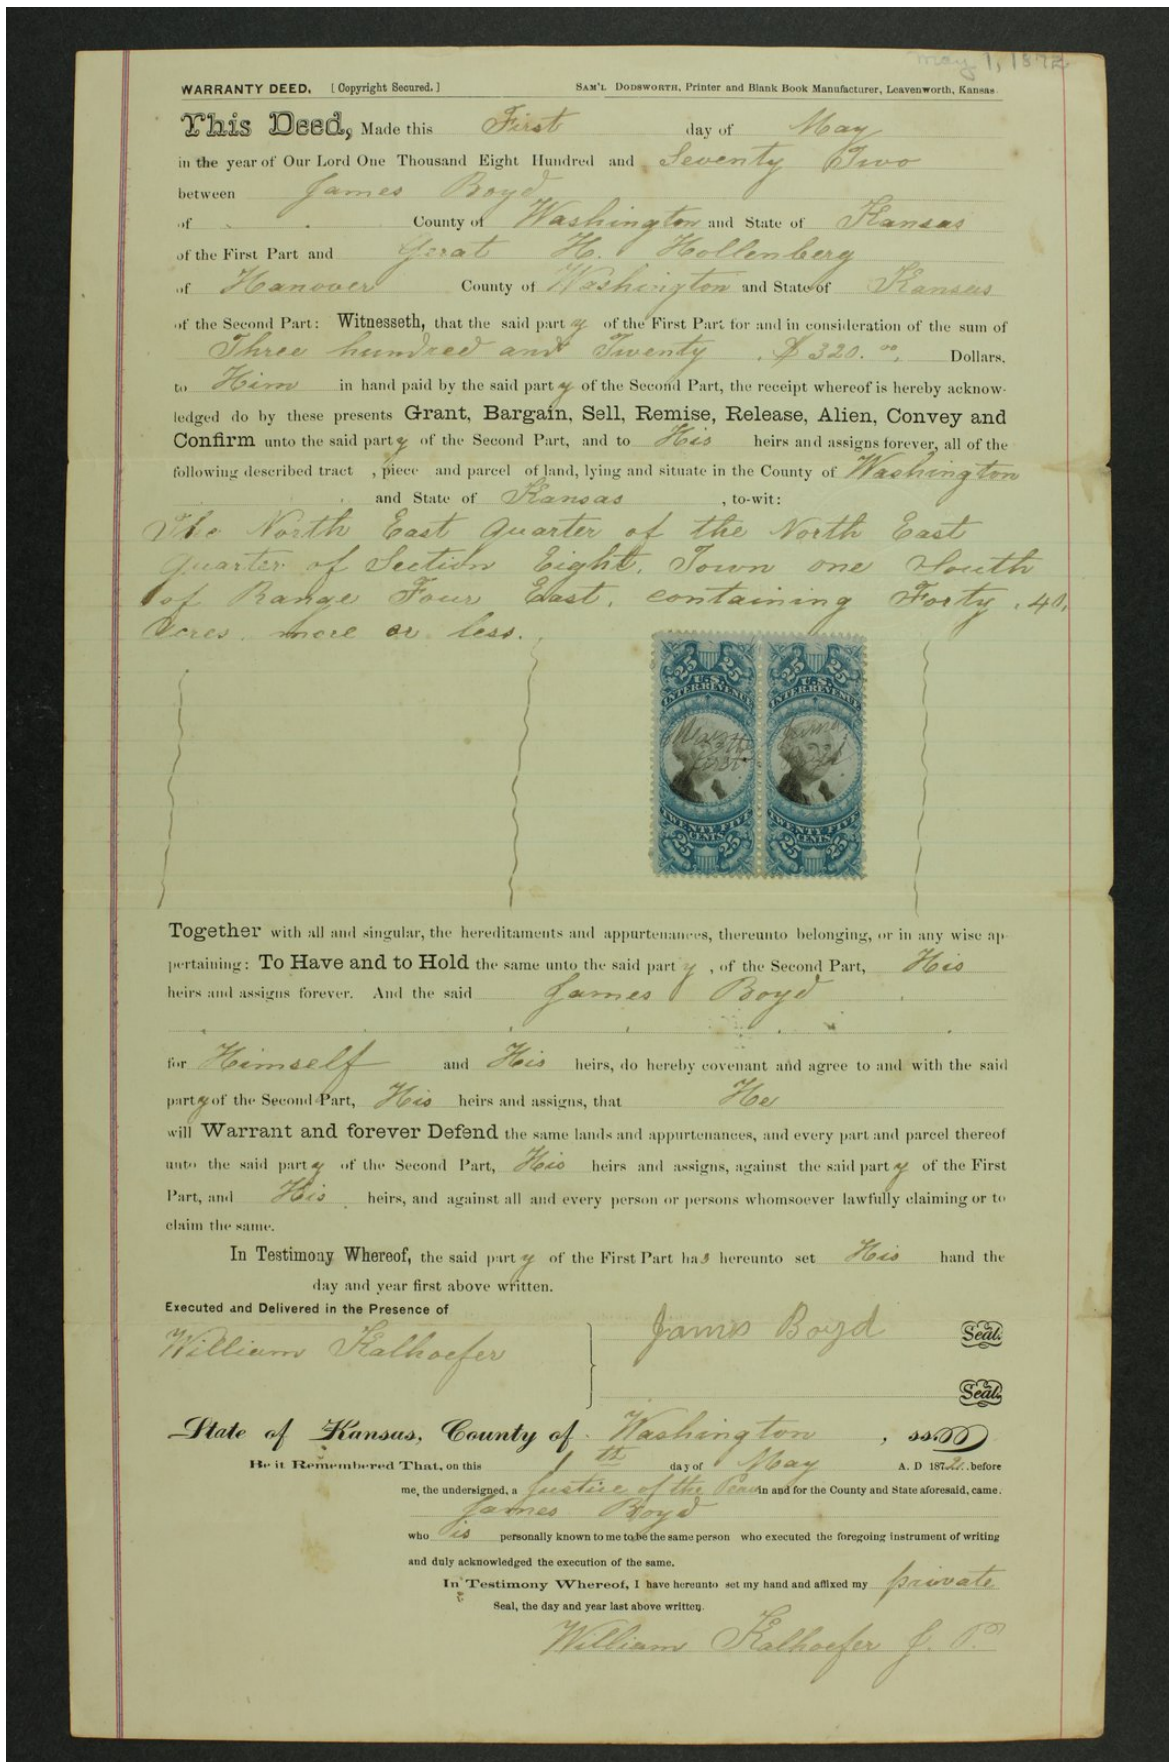 May 1, 1872
WARRANTY DEED. [Copyright Secured.] SAM'L DODSWORTH, Printer and Blank Book Manufacturer, Leavenworth, Kansas.
This Deed, Made this First day of May
in the year of Our Lord One Thousand Eight Hundred and Seventy Two
between James Boyd
of County of Washington and State of Kansas
of the First Part and Gerat H. Hollenberg
of Hanover County of Washington and State of Kansas
of the Second Part: Witnesseth, that the said party of the First Part for and in consideration of the sum of
Three hundred and Twenty $320.00 Dollars.
to Him in hand paid by the said party of the Second Part, the receipt whereof is hereby acknow-
ledged do by these presents Grant, Bargain, Sell, Remise, Release, Alien, Convey and
Confirm unto the said party of the Second Part, and to His heirs and assigns forever, all of the
following described tract , piece and parcel of land, lying and situate in the County of Washington
and State of Kansas , to-wit:
The North East Quarter of the North East
Quarter of Section Eight, Town one South
of Range Four East, containing Forty, 40,
Acres, more or less.
25 25 25 25
U.S. U.S.
INTER.REVENUE INTER.REVENUE
James
Boyd
TWENTY FIVE TWENTY FIVE
CENTS CENTS
25 25 25 25
Together with all and singular, the hereditaments and appurtenances, thereunto belonging, or in any wise ap-
pertaining: To Have and to Hold the same unto the said party , of the Second Part, His
heirs and assigns forever. And the said James Boyd
for Himself and His heirs, do hereby covenant and agree to and with the said
party of the Second Part, His heirs and assigns, that He
will Warrant and forever Defend the same lands and appurtenances, and every part and parcel thereof
unto the said party of the Second Part, His heirs and assigns, against the said party of the First
Part, and His heirs, and against all and every person or persons whomsoever lawfully claiming or to
claim the same.
In Testimony Whereof, the said party of the First Part has hereunto set His hand the
day and year first above written.
Executed and Delivered in the Presence of
William Kalhoefer James Boyd Seal.
Seal.
State of Kansas, County of Washington , ss.
Be it Remembered That, on this 1th day of May A. D 1872. before
me, the undersigned, a Justice of the Peace in and for the County and State aforesaid, came.
James Boyd
who is personally known to me to be the same person who executed the foregoing instrument of writing
and duly acknowledged the execution of the same.
In Testimony Whereof, I have hereunto set my hand and affixed my private
Seal, the day and year last above written.
William Kalhoefer J. P.